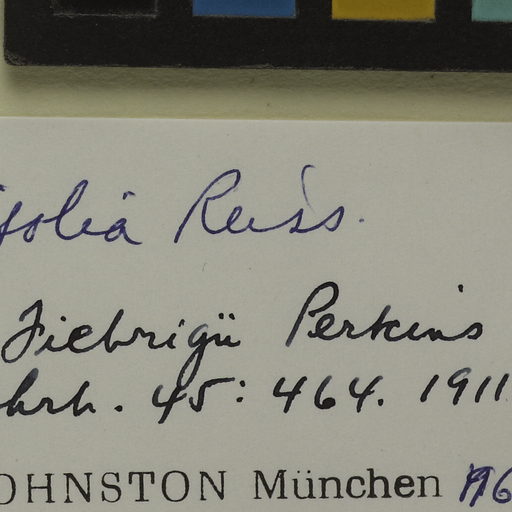 ifolia Reiss.
Fiebrigii Perkins
ahrb. 45: 464. 1911
OHNSTON München 196